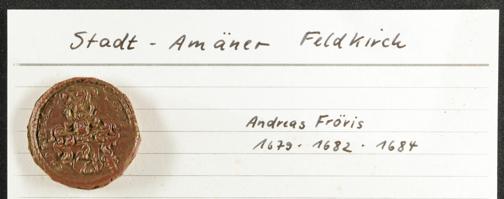 Stadt - Amäner Feldkirch
Andreas Fröris
1679. 1682. 1684